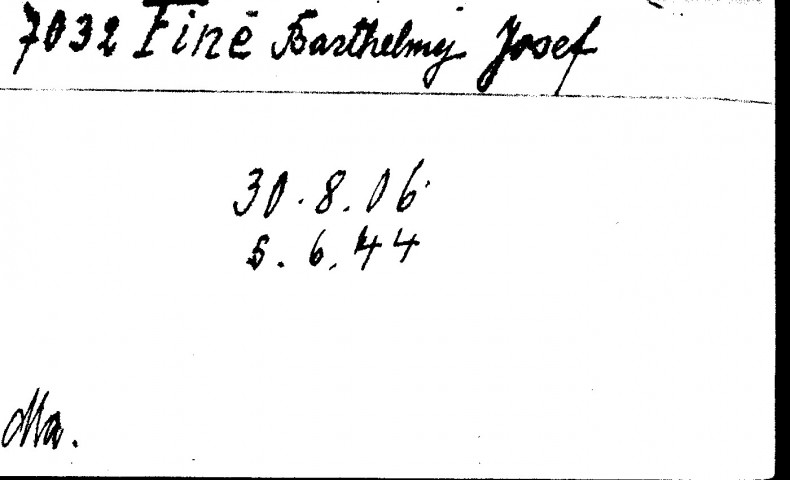 7032 Finé Barthelmy Josef
30.8.06
5.6.44
Ma.